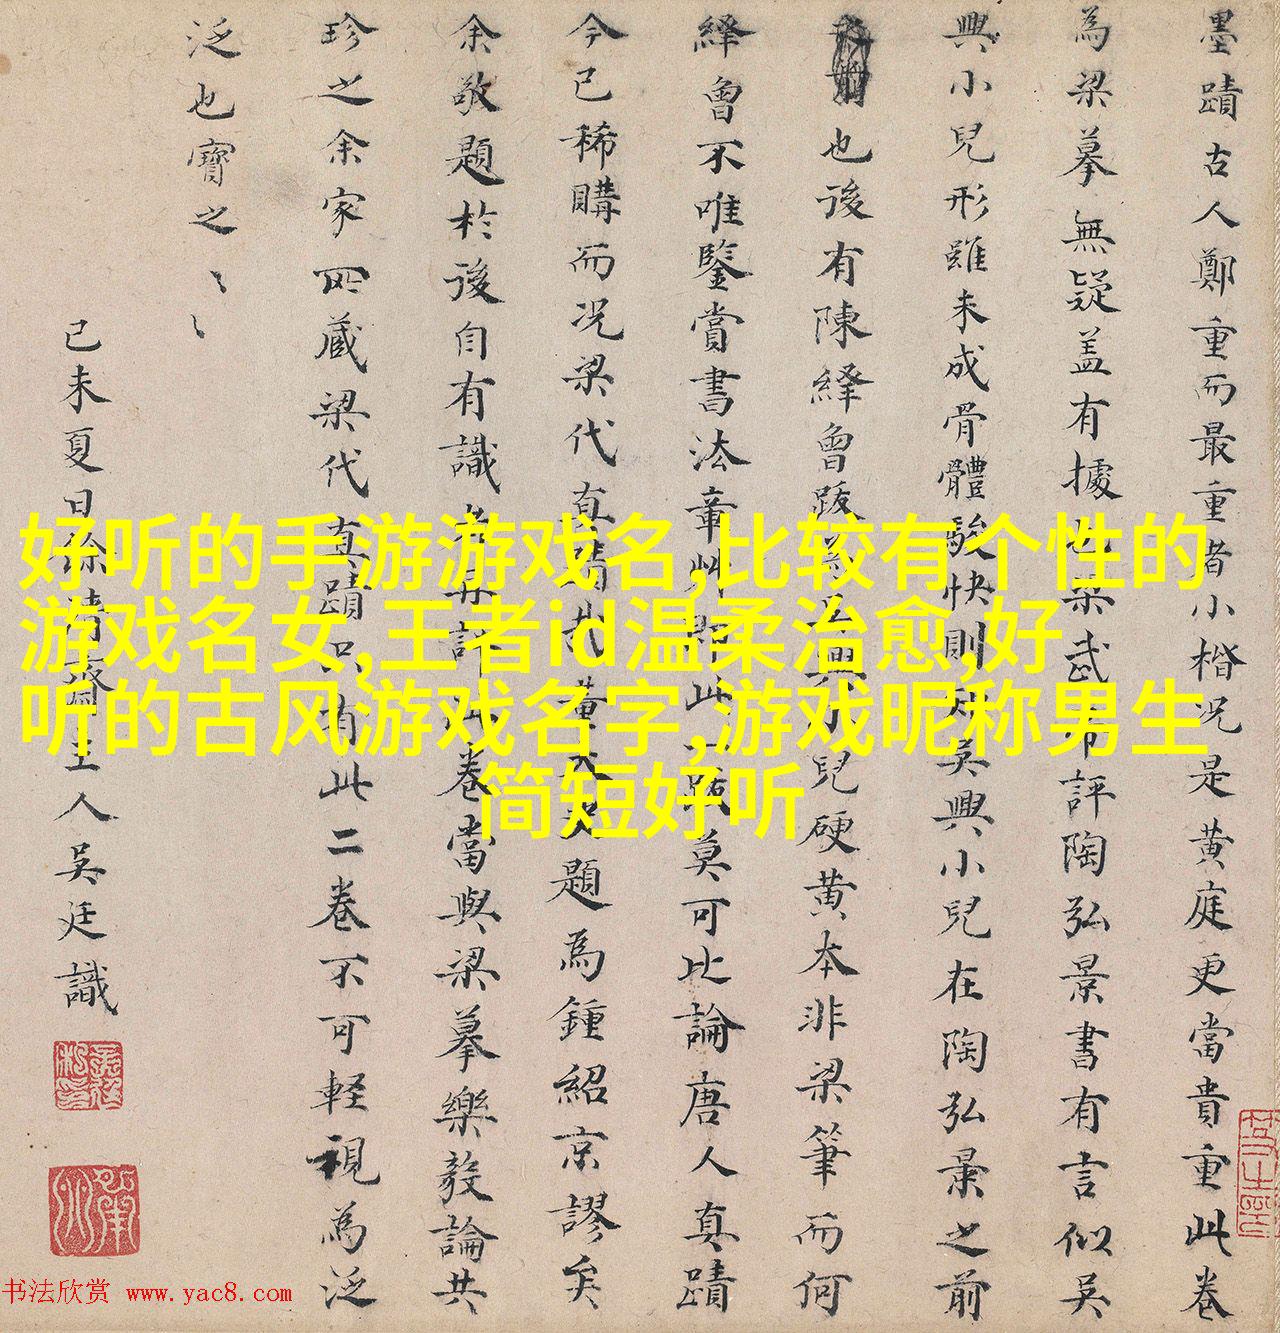 墨蹟古人鄭重而最重者小楷况是黄庭更當貴重此卷
為梁摹無疑盖有據也梁武帝評陶弘景書有言似吳
興小兒形雖未成骨體駿快則知吳興小兒在陶弘景之前
也後有陳繹曾跋為吳興小兒硬黄本非梁筆而何
繹曾不唯鑒賞書法章艸
此跋莫可比論唐人真蹟
今已稀購而况梁代真蹟
題為鍾紹京謬矣
余敬題於後自有識者
此卷當與梁摹樂毅論共
珍之余家所藏梁代真蹟只有此二卷不可輕視為泛
泛也寶之〻〻
己未夏日餘清齋主人吳廷識
好听的手游游戏名,比较有个性的
游戏名女,王者id温柔治愈,好
听的古风游戏名字,游戏昵称男生
简短好听
书法欣赏 www.yac8.com